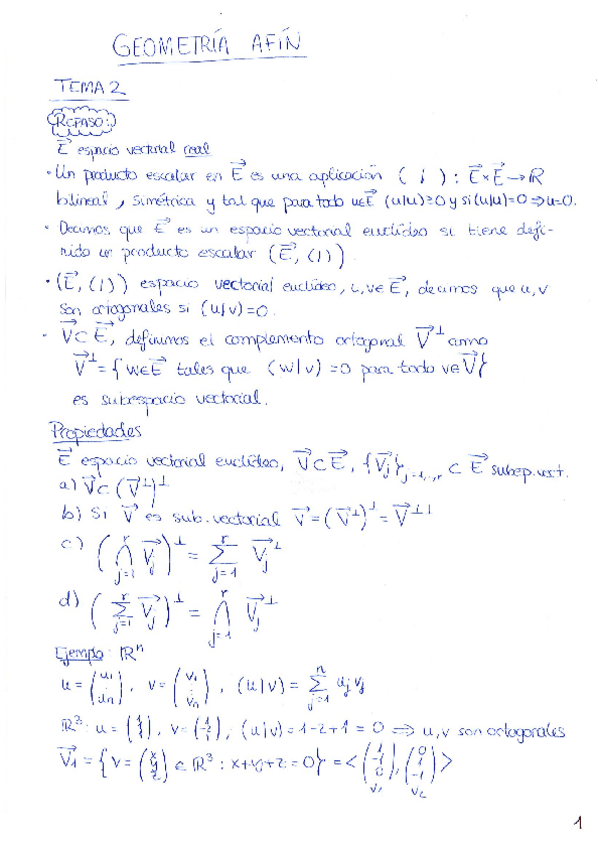 GEOMETRÍA AFÍN
TEMA 2
REPASO:
E⃗ espacio vectorial real
· Un producto escalar en E⃗ es una aplicación ( | ) : E⃗ × E⃗ → ℝ
bilineal, simétrica y tal que para todo u∈E⃗ (u|u)≥0 y si (u|u)=0 ⇒ u=0.
· Decimos que E⃗ es un espacio vectorial euclídeo si tiene defi-
nido un producto escalar (E⃗, ( | )).
· (E⃗, ( | )) espacio vectorial euclídeo, u,v∈E⃗, decimos que u,v
son ortogonales si (u|v)=0.
· V⃗⊂E⃗, definimos el complemento ortogonal V⃗^⊥ como
V⃗^⊥ = { w∈E⃗ tales que (w|v)=0 para todo v∈V⃗ }
es subespacio vectorial.
Propiedades
E⃗ espacio vectorial euclídeo, V⃗⊂E⃗, {V⃗j}j=1,...,r ⊂ E⃗ subesp. vect.
a) V⃗⊂(V⃗^⊥)^⊥
b) Si V⃗ es sub. vectorial V⃗=(V⃗^⊥)^⊥=V⃗^⊥⊥
c) (⋂_{j=1}^{r} V⃗j)^⊥ = ∑_{j=1}^{r} V⃗j^⊥
d) (∑_{j=1}^{r} V⃗j)^⊥ = ⋂_{j=1}^{r} V⃗j^⊥
Ejemplo: ℝⁿ
u = (u₁ ⋮ uₙ), v = (v₁ ⋮ vₙ), (u|v) = ∑_{j=1}^{n} uj vj
(u|v) = 1-2+1 = 0 ⇒ u,v son ortogonales
V⃗₁ = { v = (x y z) ∈ ℝ³ : x+y+z=0 } = < (1 -1 0), (0 1 -1) >
v₁ v₂
1